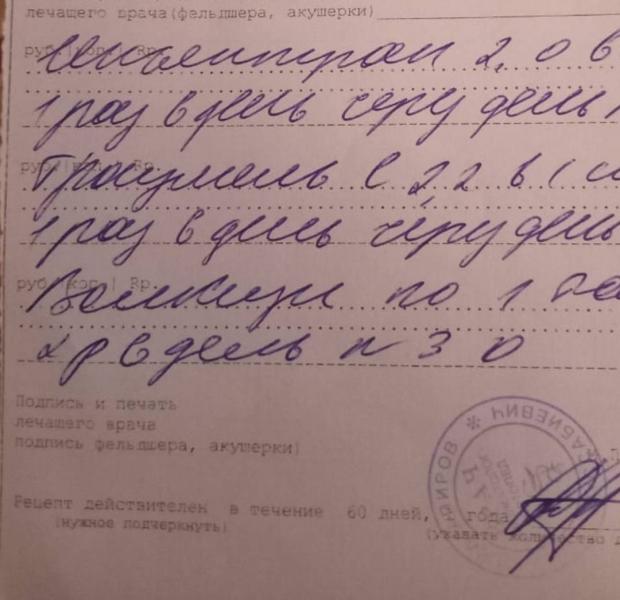 лечащего врача(фельдшера, акушерки)
руб.|коп.| Rp.
2,0 в
1 раз в день через день
руб.|коп.| Rp.
Траумель С 2,2 в/
1 раз в день через день
руб.|коп.| Rp.
по 1
2 р в день n 30
Подпись и печать
лечащего врача
подпись фельдшера, акушерки)
Рецепт действителен в течение 60 дней, года
(нужное подчеркнуть)
(указать количество